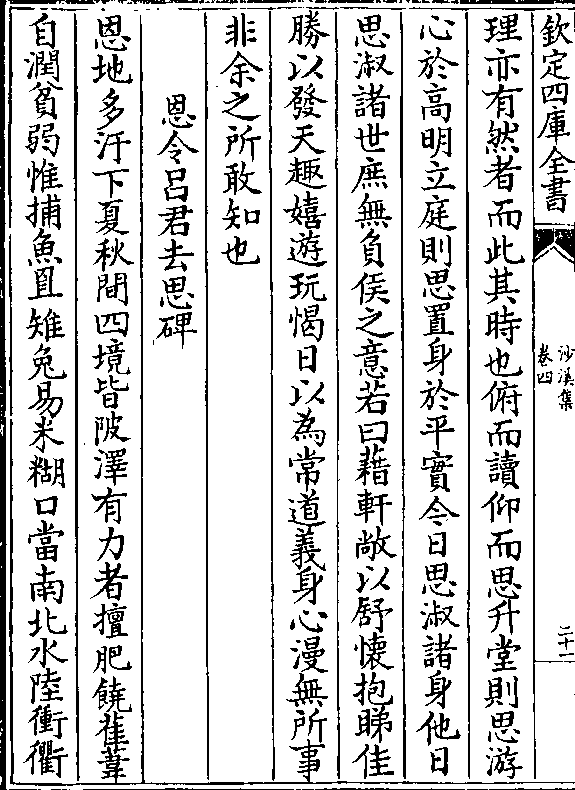 欽定四庫全書
沙溪集
卷四
二十一
理亦有然者而此其時也俯而讀仰而思升堂則思游
心於高明立庭則思置身於平實今日思淑諸身他日
思淑諸世庶無負侯之意若曰藉軒敞以舒懷抱睇佳
勝以發天趣嬉遊玩愒日以為常道義身心漫無所事
非余之所敢知也
恩令呂君去思碑
恩地多汙下夏秋間四境皆陂澤有力者擅肥饒萑葦
自潤貧弱惟捕魚罝雉兔易米糊口當南北水陸衝衢